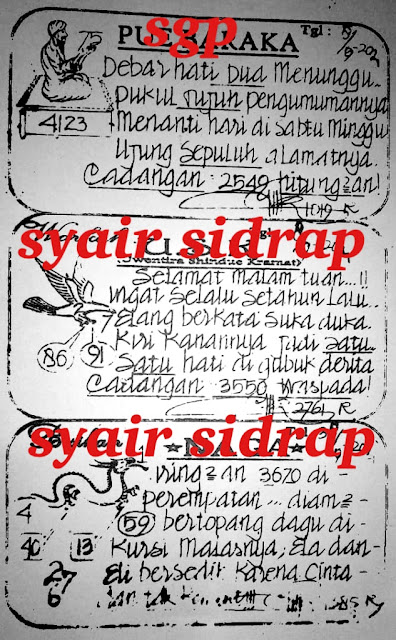 sgp
Tgl :
75
Debar hati Dua Menunggu..
pukul Tujuh pengumumannya
4123 Menanti hari di Sabtu Minggu
Ujung Sepuluh alamatnya.
Cadangan : 2549
syair sidrap
(Iwentira Shindue Kramat)
Selamat Malam tuan...!!
ingat Selalu Setahun Lalu..
Elang berkata Suka duka.
Kiri Kanannya Jadi satu..
86 91 Satu hati di gubuk derita
Cadangan : 3550 Waspada!
2761 R
syair sidrap
3670 di -
perempatan ... diam2 -
4 59 bertopang dagu di -
40 13 Kursi Malasnya, Ela dan -
27 Eli bersedih Karena Cinta -
6 dan tak